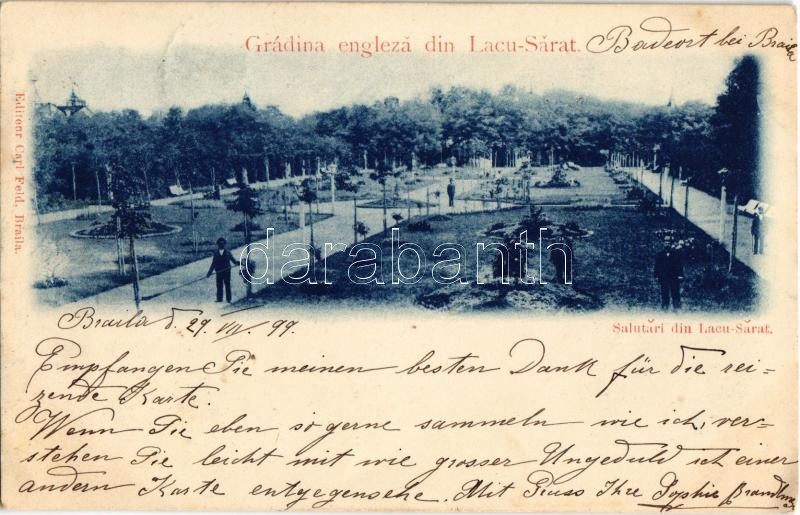 Grădina engleză din Lacu-Sărat.
Badeort bei Braila
Editeur Carl Feld, Braila.
darabanth
Salutări din Lacu-Sărat.
Braila d. 29. VII. 99.
Empfangen Sie meinen besten Dank für die rei-
zende Karte.
Wenn Sie eben so gerne sammeln wie ich, ver-
stehen Sie leicht mit wie grosser Ungeduld ich einer
andern Karte entgegensehe. Mit Gruss Ihre Sophie